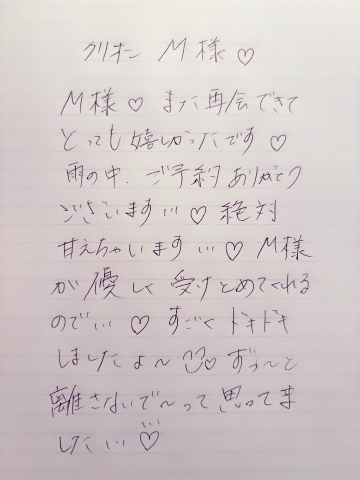 クリオン M様♡
M様♡ また再会できて
とっても嬉しかったです♡
雨の中、ご予約ありがとう
ございます…♡ 絶対
甘えちゃいます…♡ M様
が優しく受けとめてくれる
のでぃ…♡ すごくドキドキ
しましたよ〜♡ ずぅ〜と
離さないで〜って思ってま
した…♡